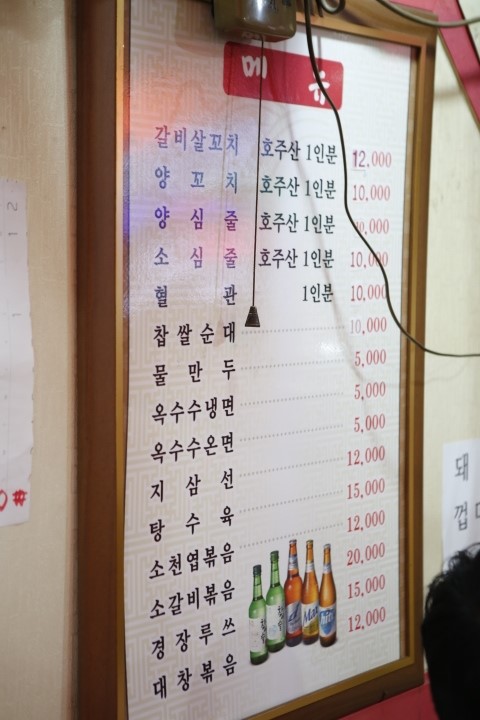 메뉴
갈비살꼬치 호주산 1인분 12,000
양꼬치 호주산 1인분 10,000
양심줄 호주산 1인분 10,000
소심줄 호주산 1인분 10,000
혈관 1인분 10,000
찹쌀순대 10,000
물만두 5,000
옥수수냉면 5,000
옥수수온면 5,000
지삼선 12,000
탕수육 15,000
소천엽볶음 12,000
소갈비볶음 20,000
경장루쓰 15,000
대창볶음 12,000
돼
껍